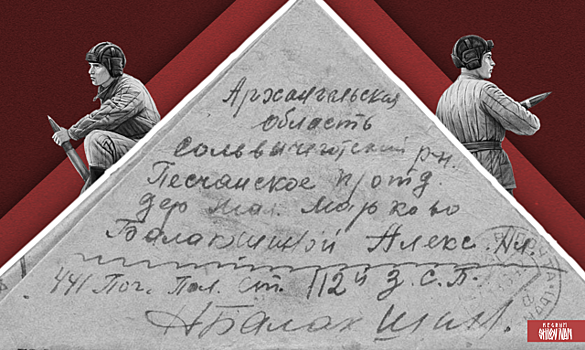 Архангельская
область
Сольвычегодский р-н.
Песчанское п/отд.
дер Мал. Марково
Балакшиной Алекс.
441 Поч. Пол. Ст. 112й З.С.П.
АБалакшин
REGNUM